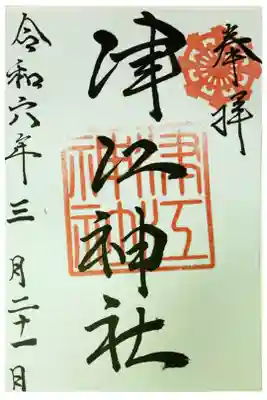 奉拝
津江神社
津江神社
令和六年三月二十一日